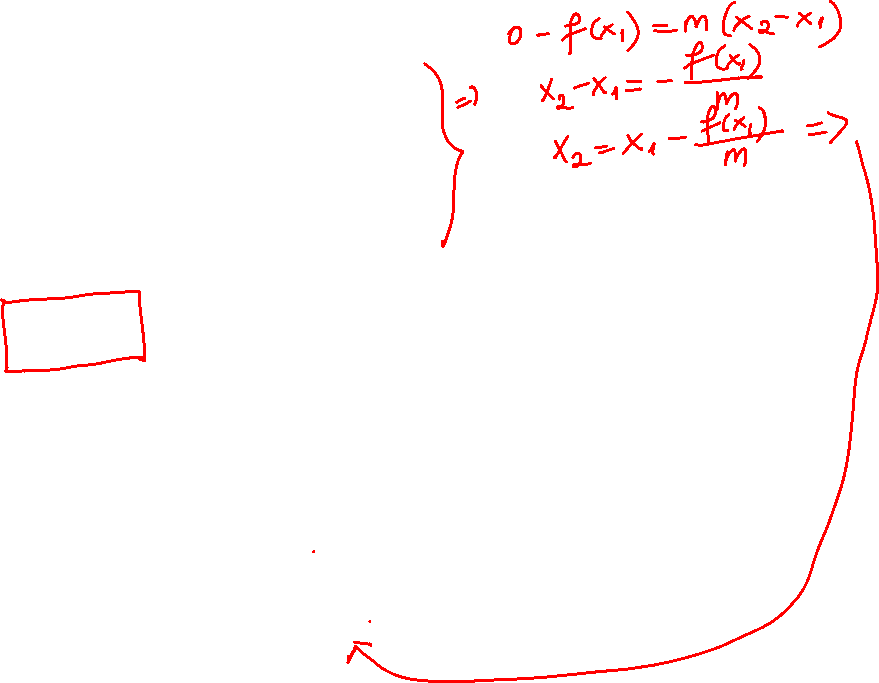 0 - f(x₁) = m (x₂ - x₁)
⇒ x₂ - x₁ = - f(x₁)/m
x₂ = x₁ - f(x₁)/m ⇒